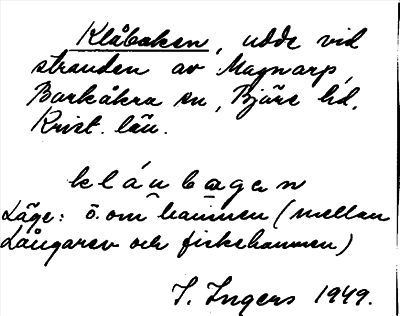 Klåbaken, udde vid
stranden av Magnarp,
Barkåkra sn, Bjäre hd,
Krist. län.
kláu bagan
Läge: ö. om hamnen (mellan
Långarev och fiskehamnen)
I. Ingers 1949.